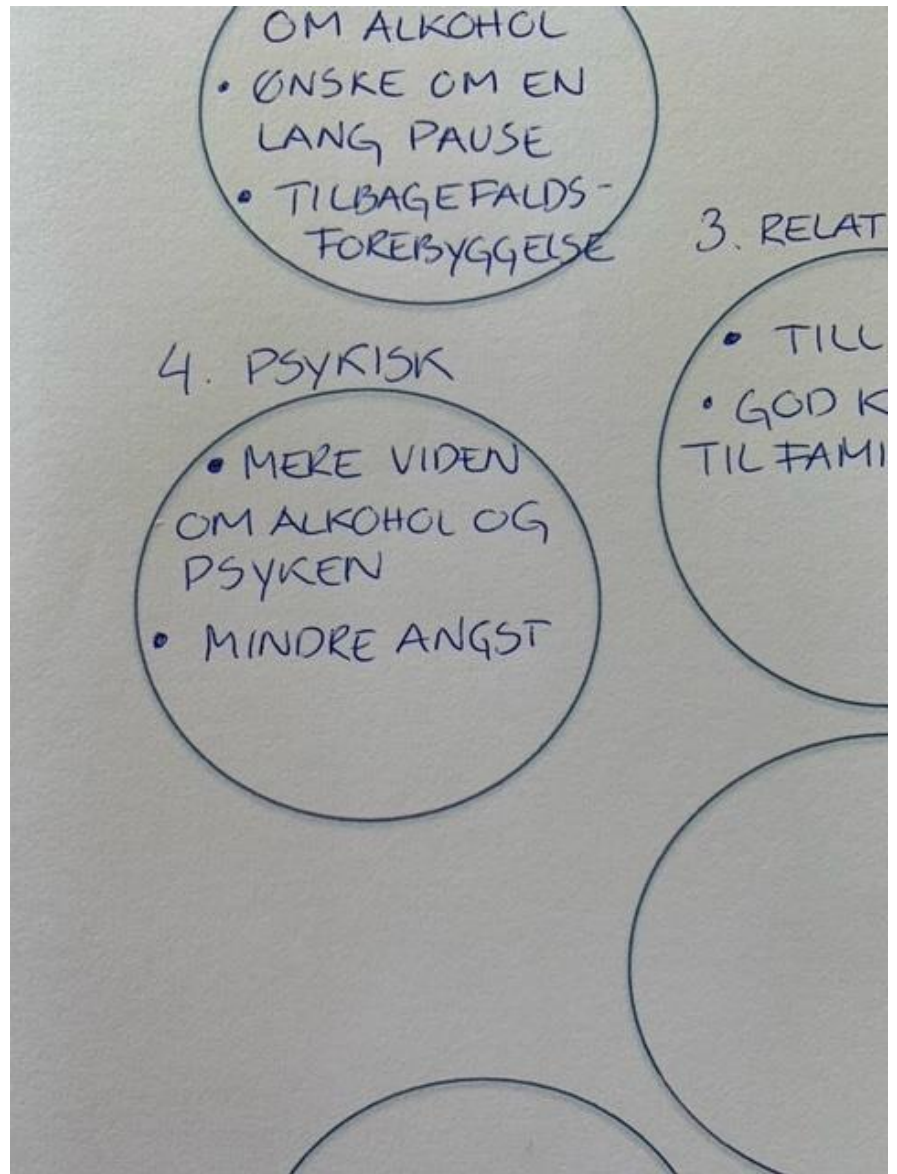 OM ALKOHOL
• ØNSKE OM EN
LANG PAUSE
• TILBAGEFALDS-
FOREBYGGELSE
3. RELAT
• TILL
• GOD K
TIL FAMI
4. PSYKISK
• MERE VIDEN
OM ALKOHOL OG
PSYKEN
• MINDRE ANGST